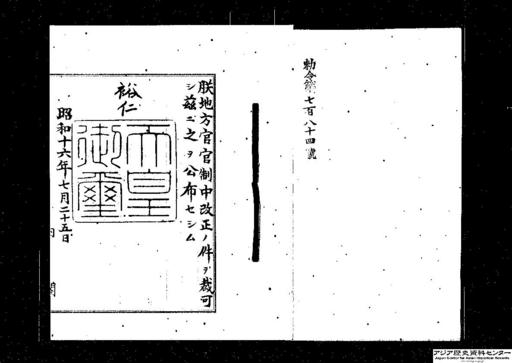 勅令第七百八十四號
朕地方官官制中改正ノ件ヲ裁可
シ茲ニ之ヲ公布セシム
裕仁
天皇御璽
昭和十六年七月二十五日
内閣
アジア歴史資料センター
Japan Center for Asian Historical Records